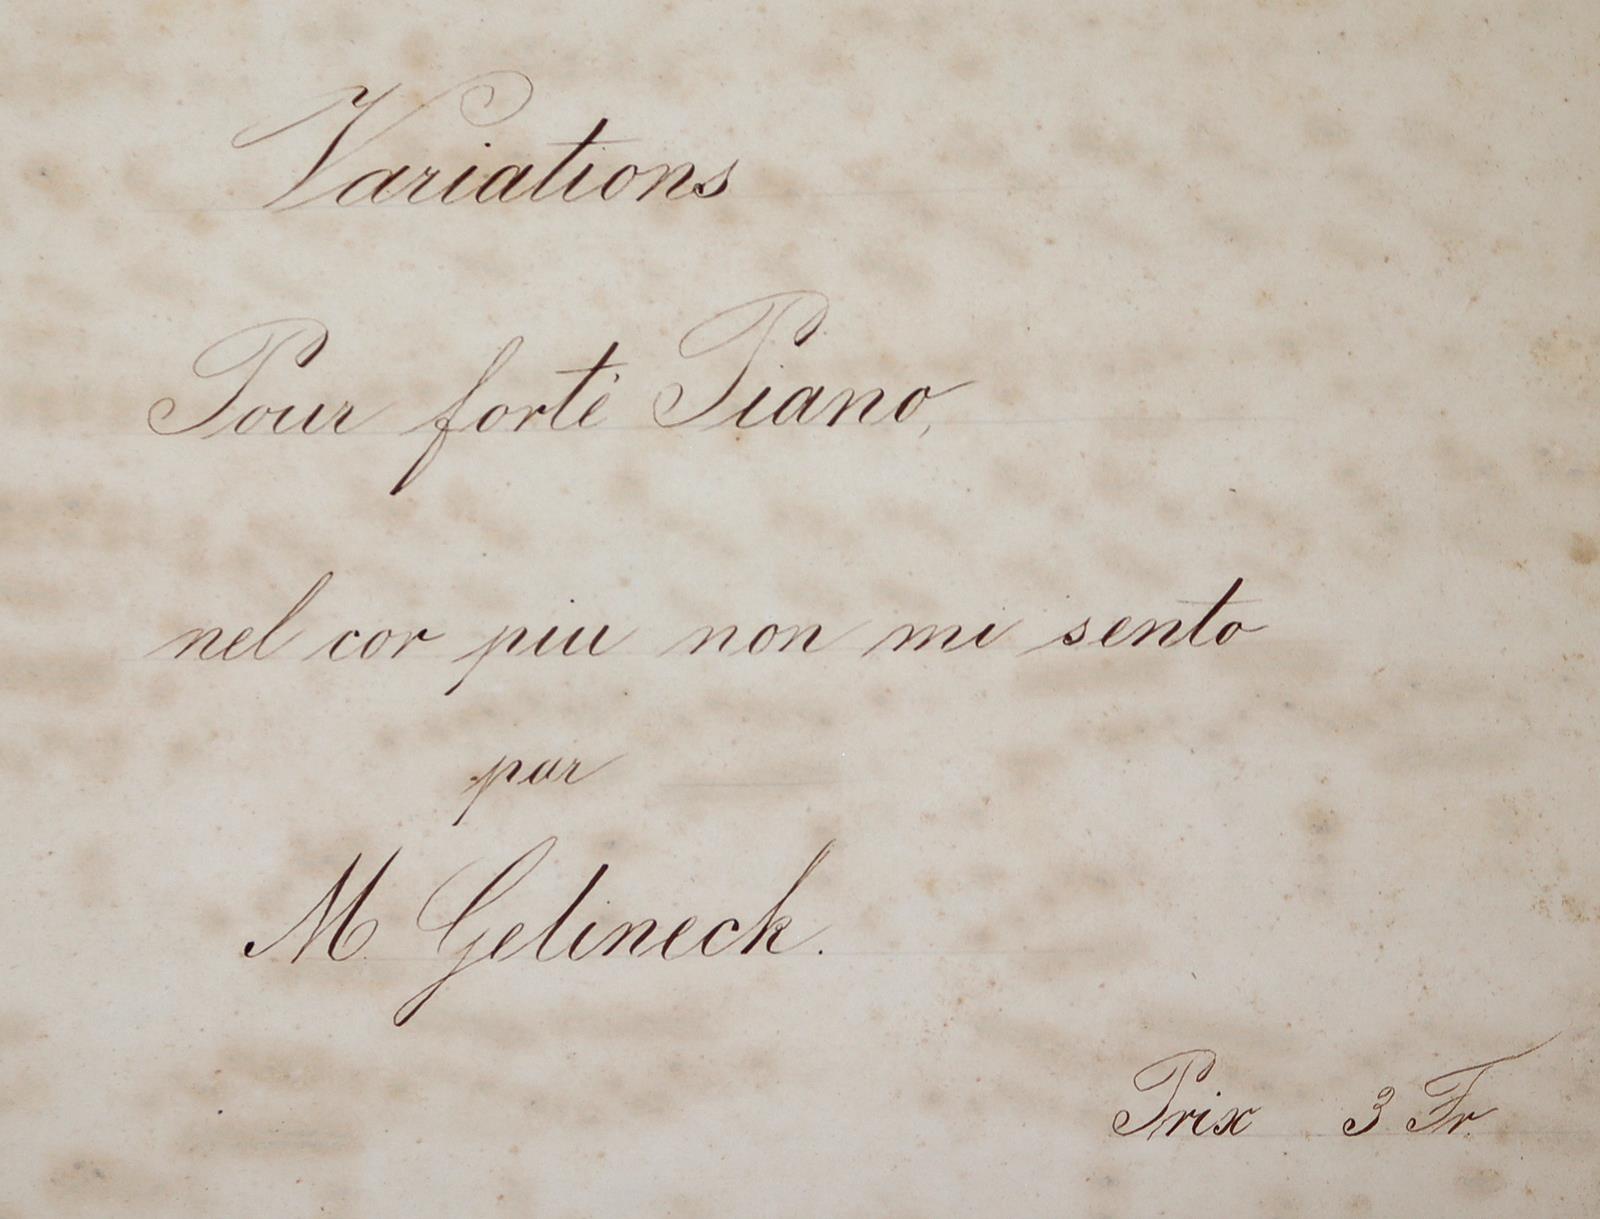 Variations
Pour forté Piano,
nel cor piu non mi sento
par
M. Gelineck.
Prix 3 Fr.